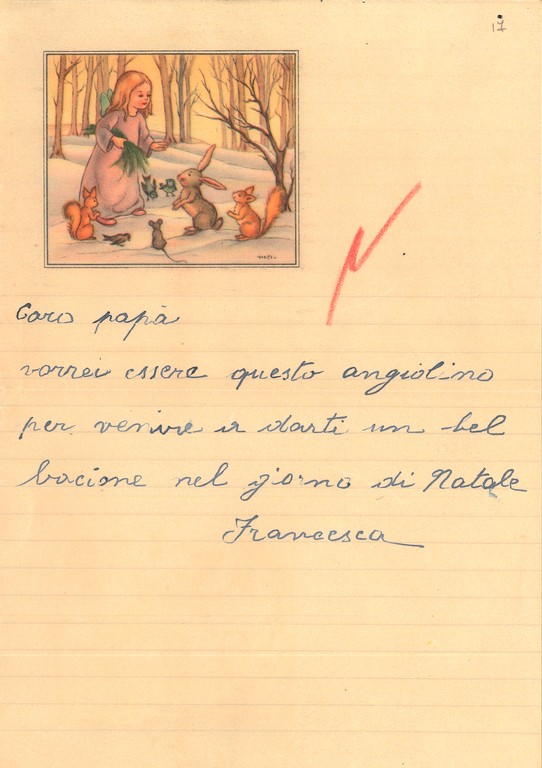 17
Caro papà
vorrei essere questo angiolino
per venire a darti un bel
bacione nel giorno di Natale
Francesca